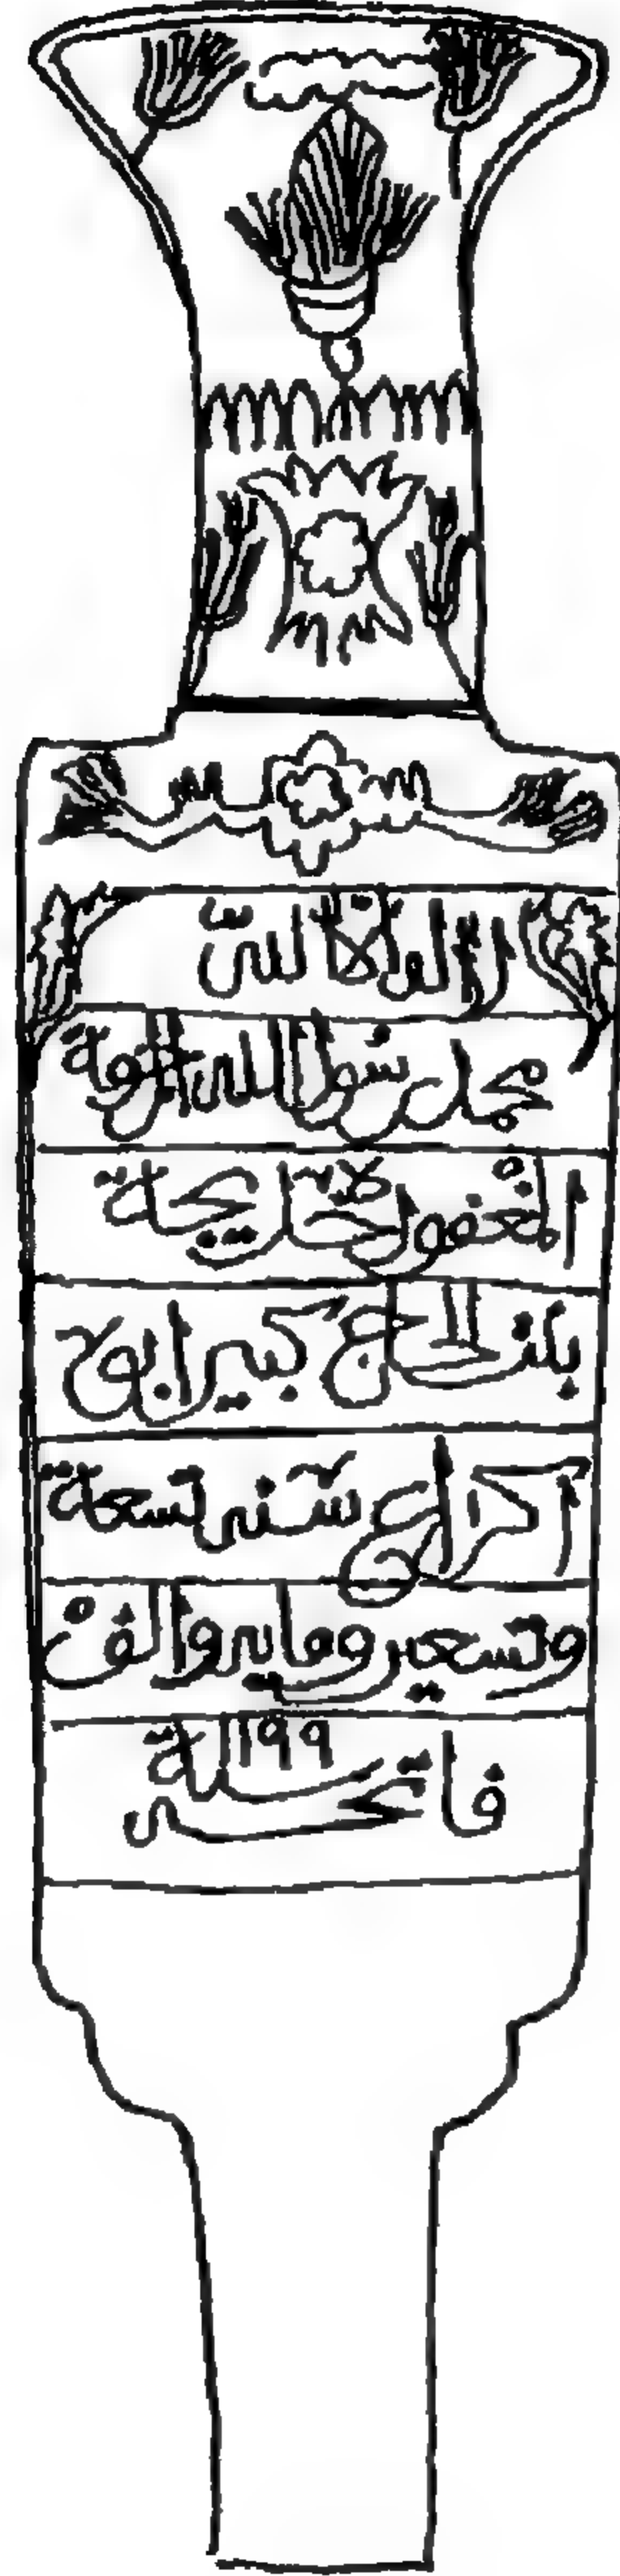 لا اله الا الله
محمد رسول الله المرحومة
المغفور لها خديجة
بنت الحاج كبير ابوبكر
اكراي سنه تسعة
وتسعين ومايه والف
١١٩٩ فاتحه